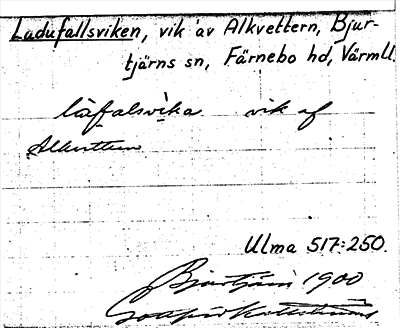 Ladufallsviken, vik av Alkvettern, Bjur-
tjärns sn, Färnebo hd, Värml.
lafalsvika vik af
Alkvettern
Ulma 517:250.
Bjurtjärn 1900